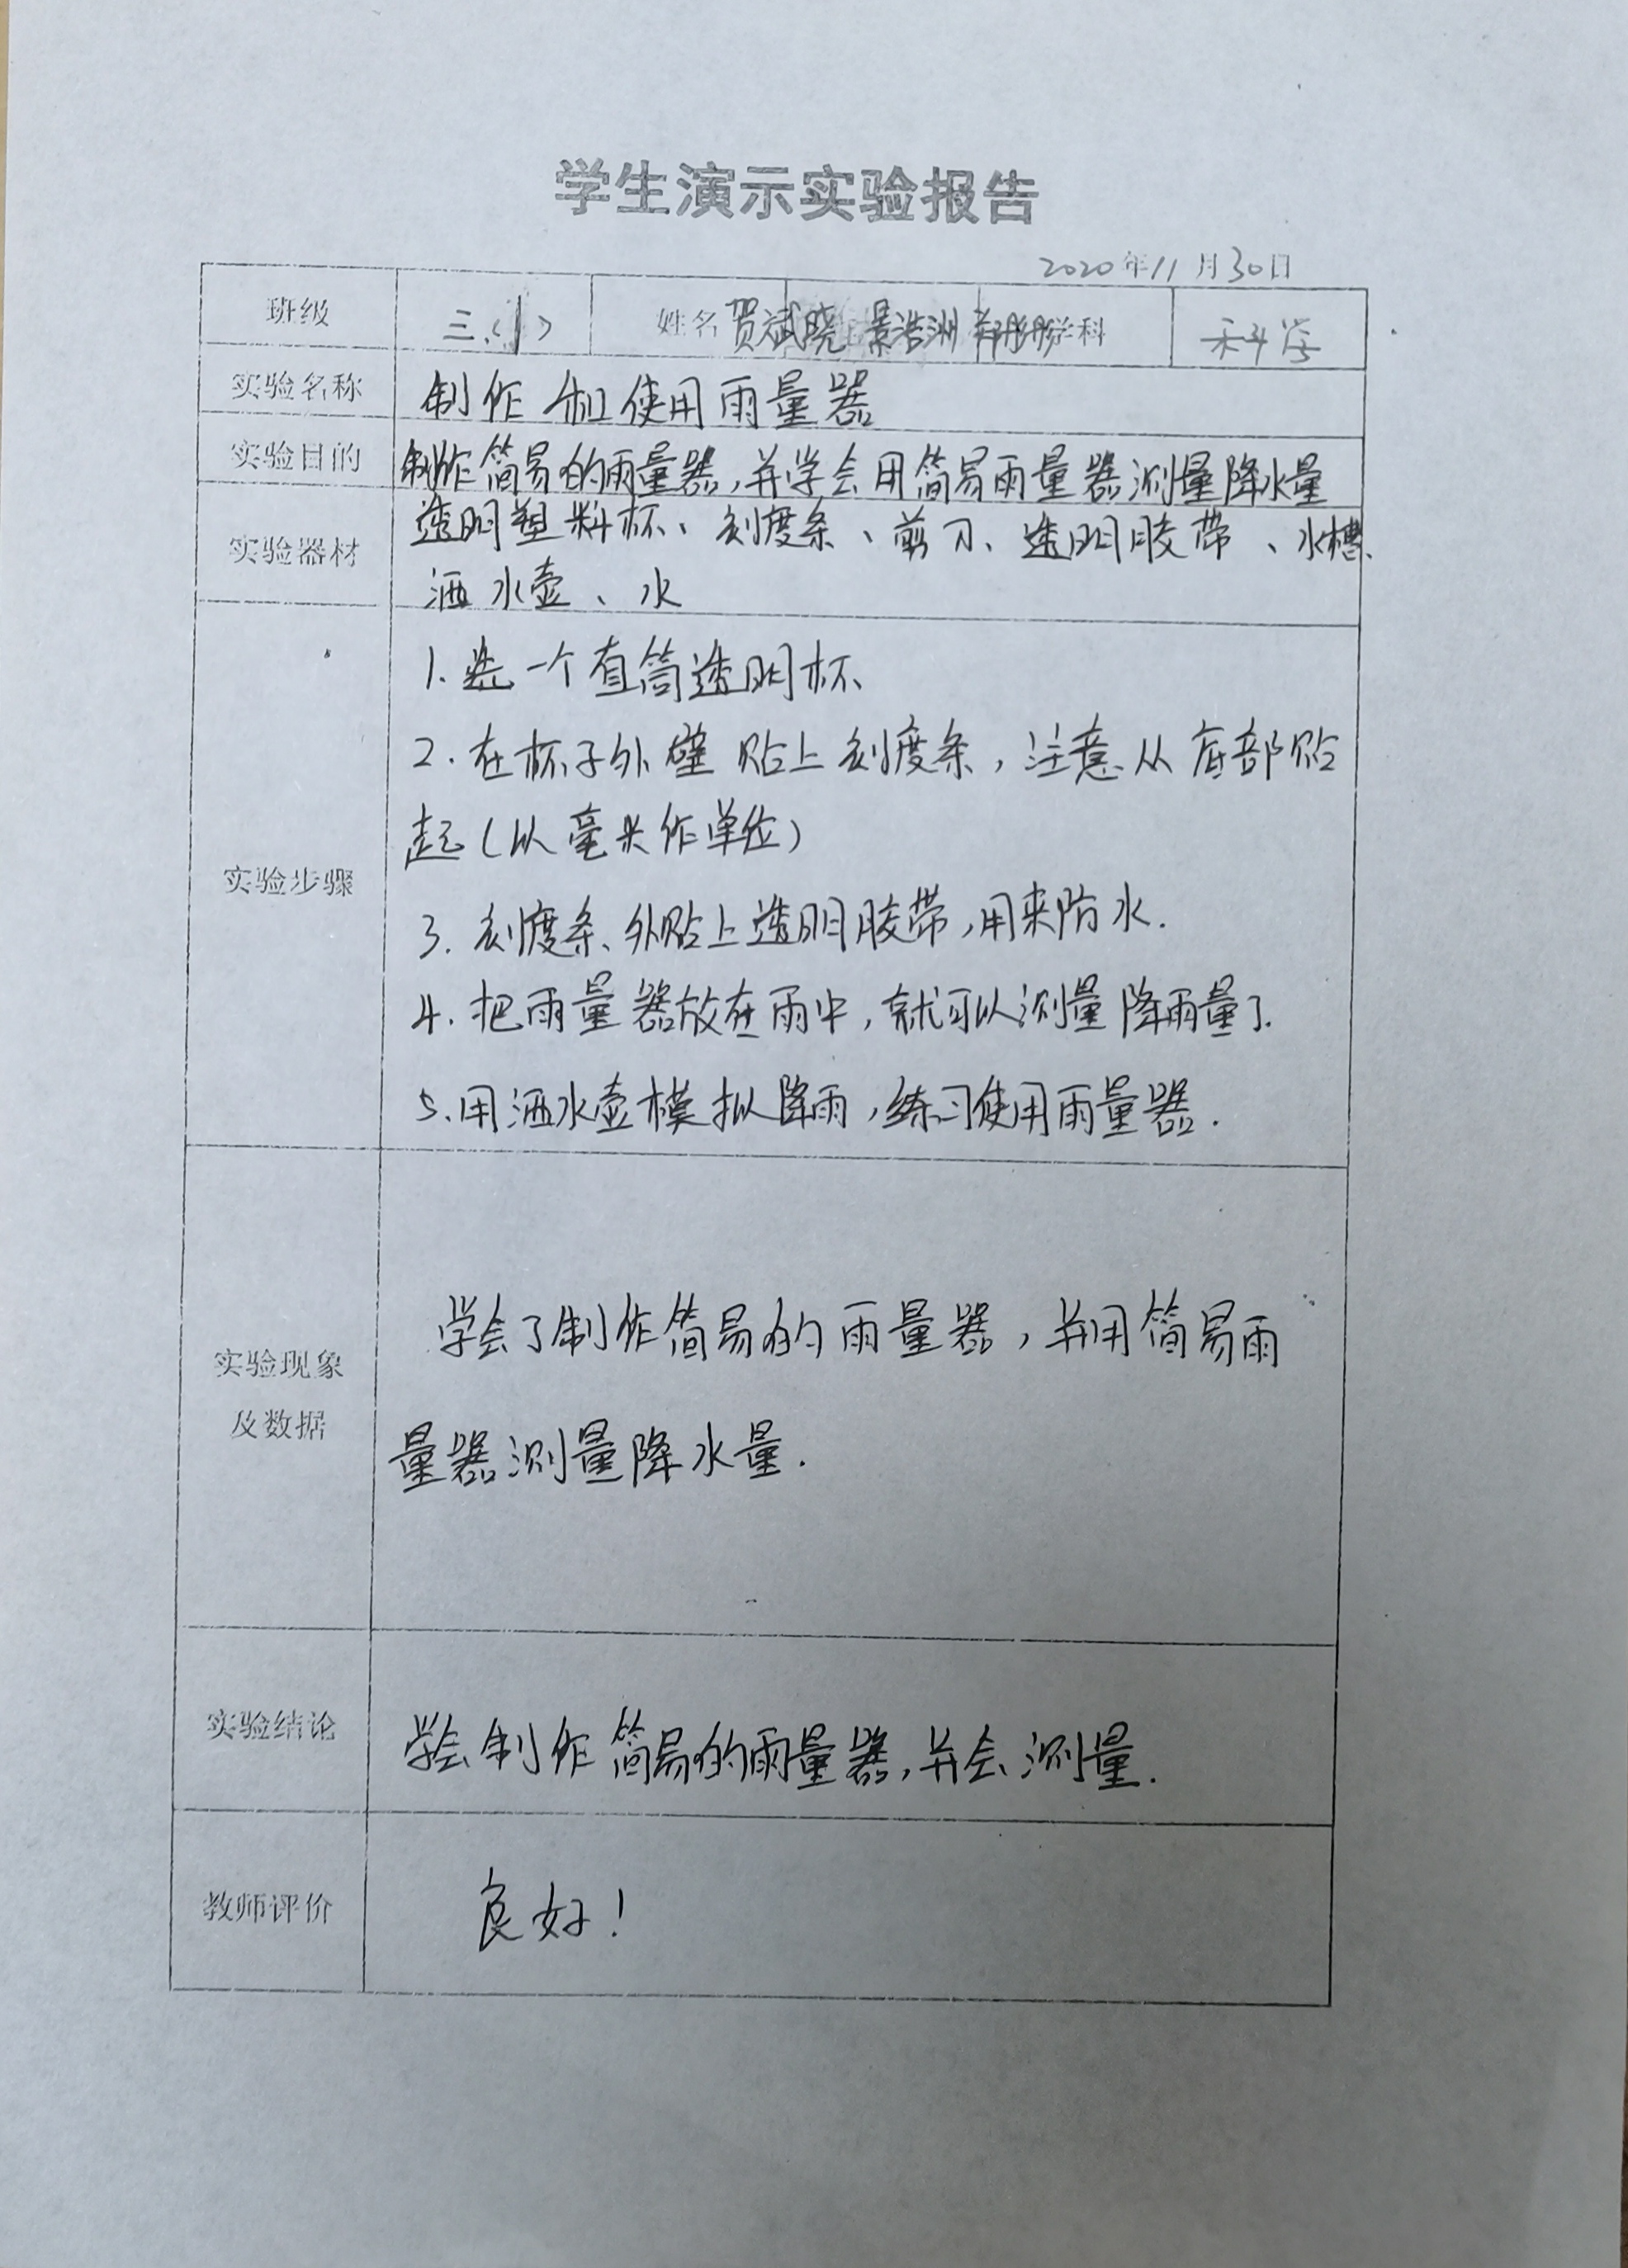 学生演示实验报告
2020年11月30日
班级 三(1) 姓名 贺斌晓 景浩洲 学科 科学
实验名称 制作和使用雨量器
实验目的 制作简易的雨量器,并学会用简易雨量器测量降水量
实验器材 透明塑料杯、刻度条、剪刀、透明胶带、水槽、
洒水壶、水
实验步骤
1.选一个直筒透明杯、
2.在杯子外壁贴上刻度条,注意从底部贴
起(以毫米作单位)
3.刻度条、外贴上透明胶带,用来防水.
4.把雨量器放在雨中,就可以测量降雨量了.
5.用洒水壶模拟降雨,练习使用雨量器.
实验现象
及数据
学会了制作简易的雨量器,并用简易雨
量器测量降水量.
实验结论 学会制作简易的雨量器,并会测量.
教师评价 良好!